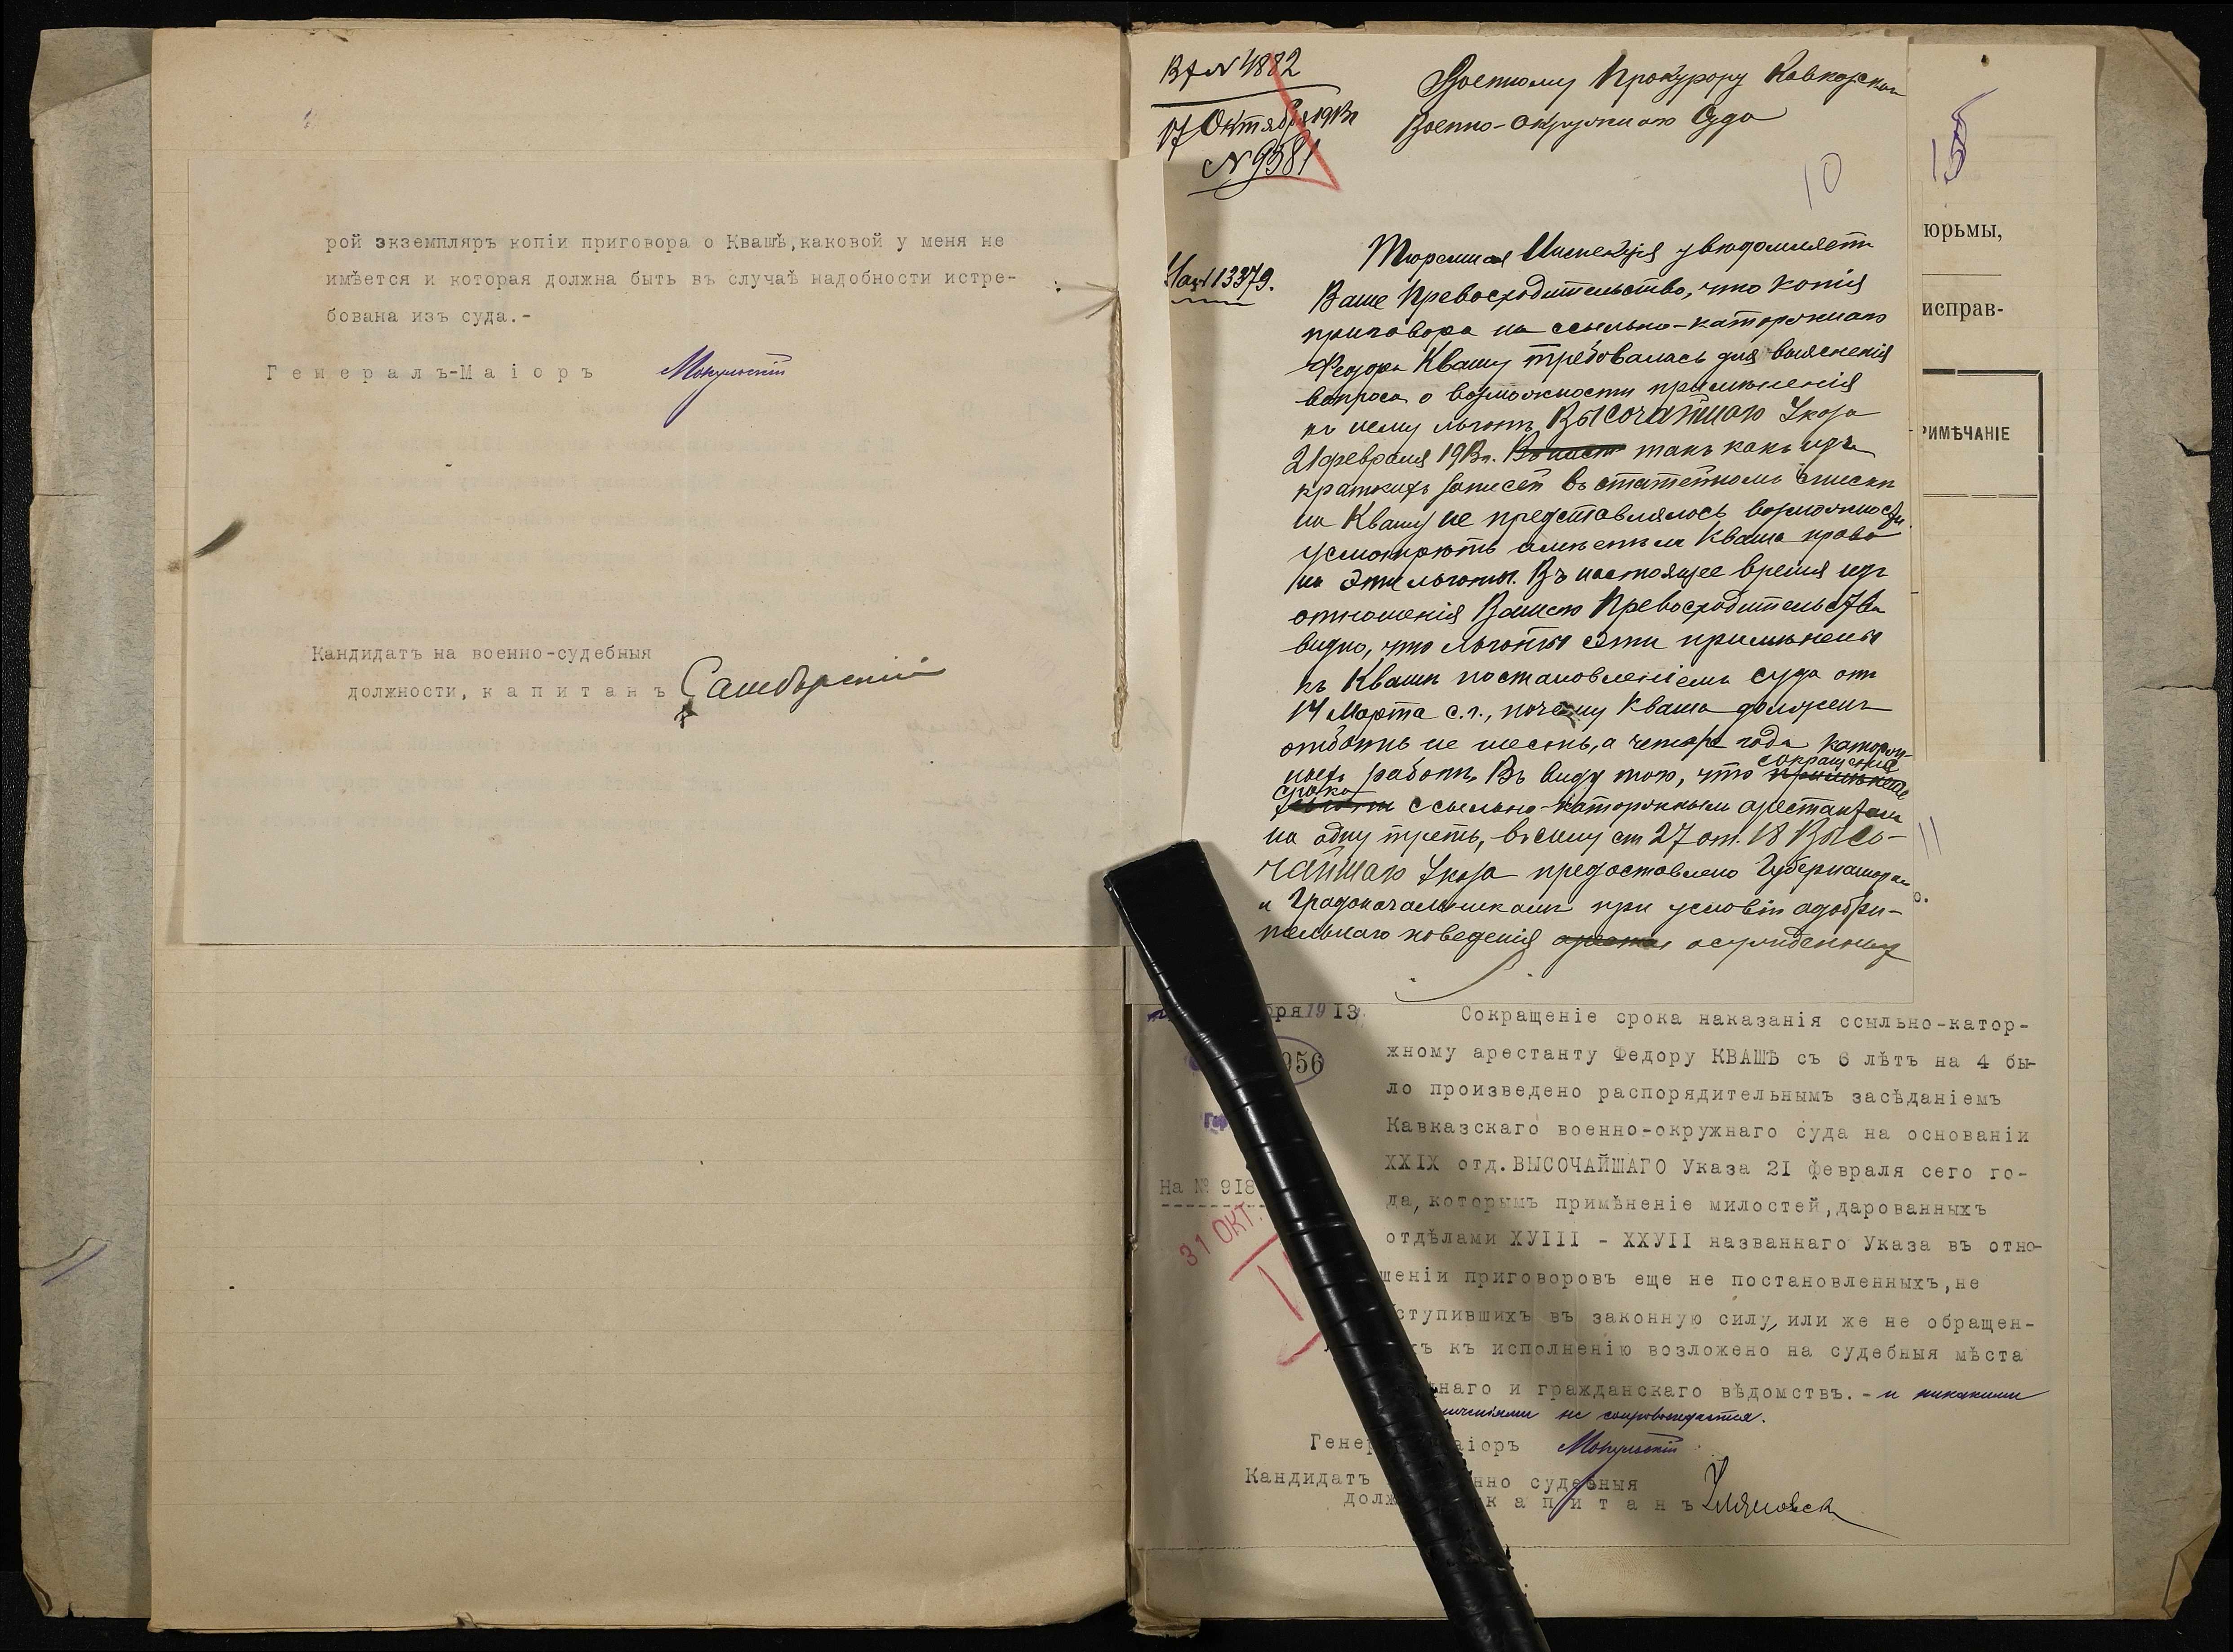 рой экземпляръ копіи приговора о Квашѣ,каковой у меня не
имѣется и которая должна быть въ случаѣ надобности истре-
бована изъ суда.-
Генералъ-Маіоръ
Кандидатъ на военно-судебныя
должности, капитанъ
В/№ 4882
17 Октября 1913г
№ 9381
Военному Прокурору Кавказскаго
Военно-Окружнаго Суда
10
На № 13379.
Тюремная Инспекція увѣдомляетъ
Ваше Превосходительство, что копія
приговора на ссыльно-каторжнаго
Федора Квашу требовалась для выясненія
вопроса о возможности примѣненія
къ нему льготъ ВЫСОЧАЙШАГО Указа
21 февраля 1913г. такъ какъ изъ
краткихъ записей въ статейномъ списки
на Квашу не представлялось возможности
усмотрѣть имѣетъ ли Кваша право
на эти льготы. Въ настоящее время изъ
отношенія Вашего Превосходительства
видно, что льготы эти примѣнены
къ Квашѣ постановленіемъ суда отъ
14 Марта с.г., почему Кваша долженъ
отбыть не шесть, а четыре года каторж-
ныхъ работъ. Въ виду того, что сокращеніе
срока ссыльно-каторжнымъ арестантамъ
на одну треть, въ силу ст 27 от. 18 Высо-
чайшаго Указа предоставлено Губернаторамъ
и Градоначальникамъ при условіи одобри-
тельнаго поведенія осужденных
155
юрьмы,
исправ-
РИМѢЧАНІЕ
11
о.
бря 1913
956
На № 918
31 ОКТ.
Сокращеніе срока наказанія ссыльно-катор-
жному арестанту Федору КВАШѢ съ 6 лѣтъ на 4 бы-
ло произведено распорядительнымъ засѣданіемъ
Кавказскаго военно-окружнаго суда на основаніи
XXIX отд.ВЫСОЧАЙШАГО Указа 2I февраля сего го-
да,которымъ примѣненіе милостей,дарованныхъ
отдѣлами ХУІІІ - ХХУІІ названнаго Указа въ отно-
шеніи приговоровъ еще не постановленныхъ,не
ступившихъ въ законную силу,или же не обращен-
хъ къ исполненію возложено на судебныя мѣста
наго и гражданскаго вѣдомствъ.- и никакими
не сопровождается.
Генер аіоръ
Кандидатъ нно судебныя
долж капитанъ